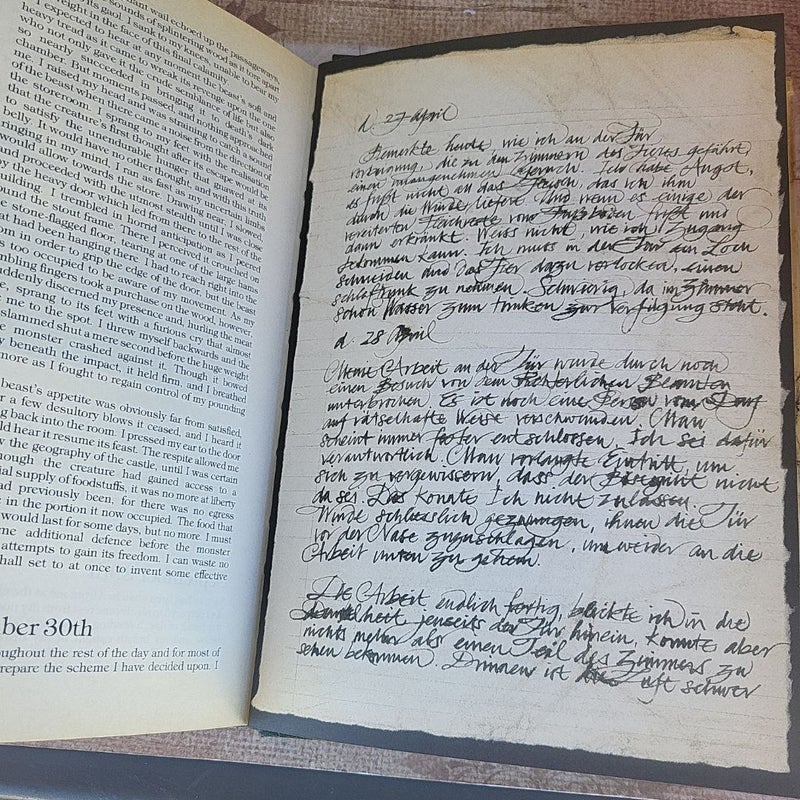 dant wail echoed up the passageways,
its gaol. I sank to my knees, unable to bear my
weight in the face of this final calamity.
expected to hear at any moment the beast's soft and
heavy tread as it came to revenge upon the one
who not only gave it the crude semblance of life but also
so nearly succeeded in bringing it to death's dark
chamber. But moments passed and nothing approached
me, I raised my head and was straining to catch a sound
of the beast when there came a noise from the direction of
the storeroom. I sprang to my feet with the realisation
that the creature's first thought after its escape would be
to satisfy the unendurable hunger that gnaped at its
belly. It would have no other thought, and with this truth
ringing in my mind, I ran as fast as my uncertain limbs
would allow towards the store. Drawing near, I slowed
and proceeded with the utmost stealth until I was close
by the heavy door which led from there to the rest of the
building. I trembled in horrid anticipation as I peered
round the stout frame. There I perceived it couched on
the stone-flagged floor, tearing at one of the large hams
that had been hanging there. I had to reach right into the
room in order to grip the edge of the door, but the beast
too occupied to be aware of my movement. As my
fumbling fingers took a purchase on the wood, however,
suddenly discerned my presence and, hurling the meat
, sprang to its feet with a furious cry that almost
me to the spot. I threw myself backwards and the
slammed shut a mere second before the huge weight
monster crashed against it. Though it bowed
beneath the impact, it held firm, and I breathed
more as I fought to regain control of my pounding
beast's appetite was obviously far from satisfied,
r a few desultory blows it ceased, and I heard it
g back into the room. I pressed my ear to the door
ld hear it resume its feast. The respite allowed me
w the geography of the castle, until I was certain
hough the creature had gained access to a
ial supply of foodstuffs, it was no more at liberty
ad previously been, for there was no egress
e in the portion it now occupied. The food that
would last for some days, but no more. I must
me additional defence before the monster
attempts to gain its freedom. I can waste no
hall set to at once to invent some effective
ber 30th
oughout the rest of the day and for most of
repare the scheme I have decided upon. I
d. 27 April
Bemerkte heute, wie ich an der Tür
vorbeiging, die zu den Zimmern des Tieres gefährt,
einen unangenehmen Geruch. Ich habe Angst,
es frißt nicht an das Fleisch, das ich ihm
durch die Wände liefere. Und wenn es einige der
vereiterten Fleischreste vom Fußboden frißt und
dann erkrankt. Weiss nicht, wie ich Zugang
bekommen kann. Ich muss in der Tür ein Loch
schneiden und das Tier dazu verlocken, einen
schlaftrunk zu nehmen. Schwierig, da im Zimmer
schon Wasser zum trinken zur verfügung steht.
d. 28 April
Meine Arbeit an der Tür wurde durch noch
einen Besuch von dem Richterlichen Beamten
unterbrochen. Es ist noch eine Person vom Dorf
auf rätselhafte Weise verschwunden. Man
scheint immer fester entschlossen, Ich sei dafür
verantwortlich. Man verlangte Eintritt, um
sich zu vergewissern, dass der nicht
da sei. Das konnte Ich nicht zulassen.
Würde schliesslich gezwungen, ihnen die Tür
vor der Nase zuzuschlagen, um wieder an die
Arbeit unten zu gehen.
Die Arbeit endlich fertig, blickte ich in die
Dunkelheit jenseits der Tür hinein, konnte aber
nichts mehr als einen Teil des Zimmers zu
sehen bekommen. Drinnen ist Luft schwer